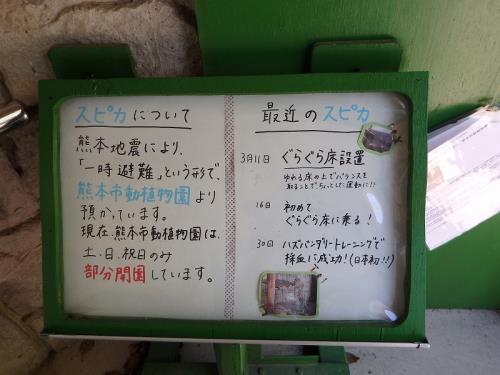 スピカについて
熊本地震により、
「一時避難」という形で、
熊本市動植物園より
預かっています。
現在、熊本市動植物園は、
土、日、祝日のみ
部分開園しています。
最近のスピカ
3月11日 ぐらぐら床設置
ゆれる床の上でバランスを
取ることでちょっとした運動に!!
16日 初めて
ぐらぐら床に乗る!
30日 ハズバンダリートレーニングで
採血に成功!(日本初!!)